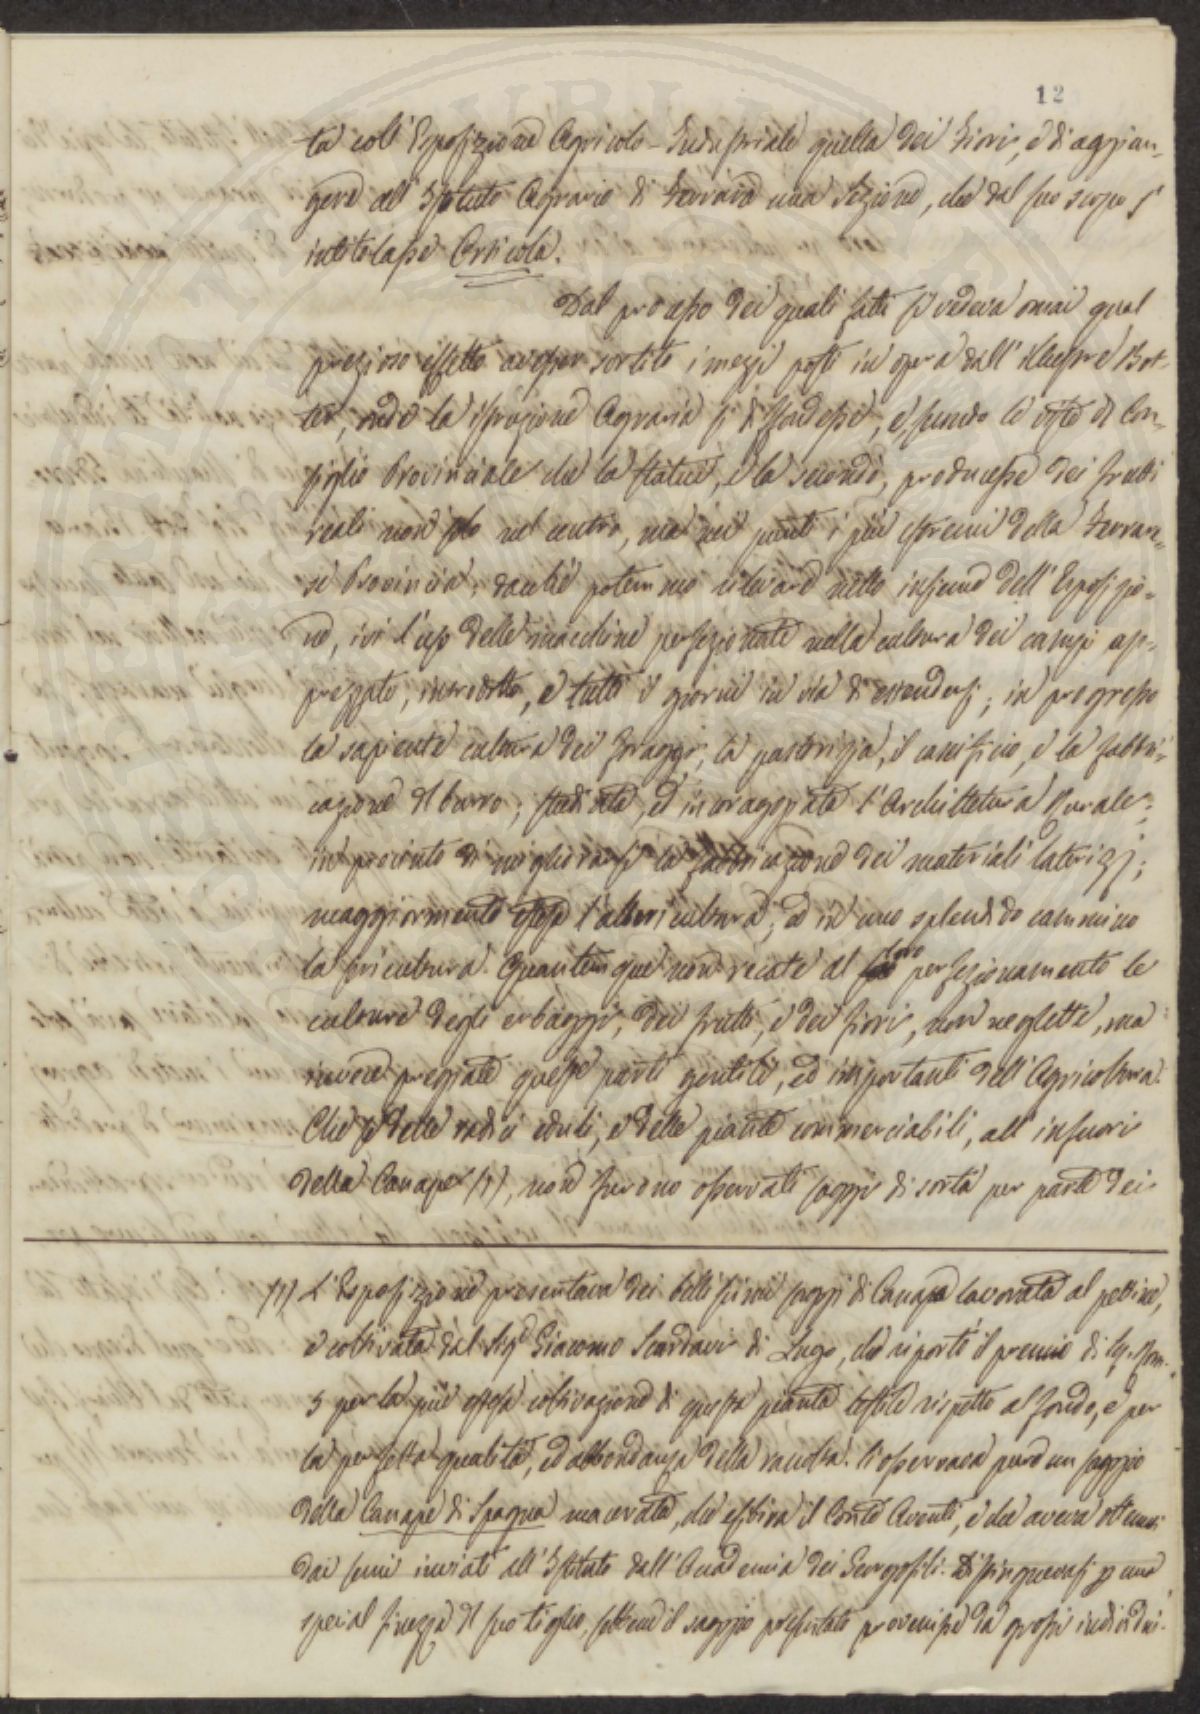 12
ta coll'Esposizione Agricolo-Industriale quella dei Fiori, e di aggiun-
gere all'Istituto Agrario di Ferrara una Sezione, che dal suo scopo s'
intitolasse Orticola.
Dal processo dei quali fatti si vedeva omai qual
prezioso effetto avesser sortito i mezzi posti in opera dall'illustre Bot-
ter, onde la istruzione Agraria si diffondesse, e secondo le viste del Con-
siglio Provinciale che la statuì, e la secondò, producesse dei frutti
reali non solo nel centro, ma nei punti i più estremi della Ferrare-
se Provincia; tantochè potemmo rilevare nello insieme dell'Esposizio-
ne, ivi l'uso delle macchine perfezionate nella cultura dei campi ap-
prezzato, introdotto, e tutti i giorni in via di estendersi; in progresso
la sapiente cultura dei foraggi, la pastorizia, il caseificio, e la fabbri-
cazione del burro; studiate, ed incoraggiate l'Architettura Rurale;
in procinto di migliorarsi la fabbricazione dei materiali laterizj;
maggiormente estesa l'albericultura, ed in uno splendido cammino
la sericultura. Quantunque non recate al loro perfezionamento le
culture degli erbaggi, dei frutti, e dei fiori, non neglette, ma
invece pregiate queste parti gentili, ed importanti dell'Agricoltura.
Che se delle radici eduli, e delle piante commerciabili, all'infuori
della Canape (1), non furono osservati saggi di sorta per parte dei
(1) L'Esposizione presentava dei bellissimi saggi di Canapa lavorata al pettine,
e coltivata dal Sigr Giacomo Scardavi di Lugo, che riportò il premio di Sc. Rom.
5 per la più estesa coltivazione di questa pianta tessile rispetto al fondo, e per
la perfetta qualità, ed abbondanza della raccolta. Si osservava pure un saggio
della Canape di Spagna macerata, che esibiva il Conte Aventi, e che aveva ottenuti
dai semi inviati all'Istituto dall'Accademia dei Georgofili. Distinguevasi p una
special finezza del suo tiglio, sebbene il saggio presentato provenisse da grossi individui.